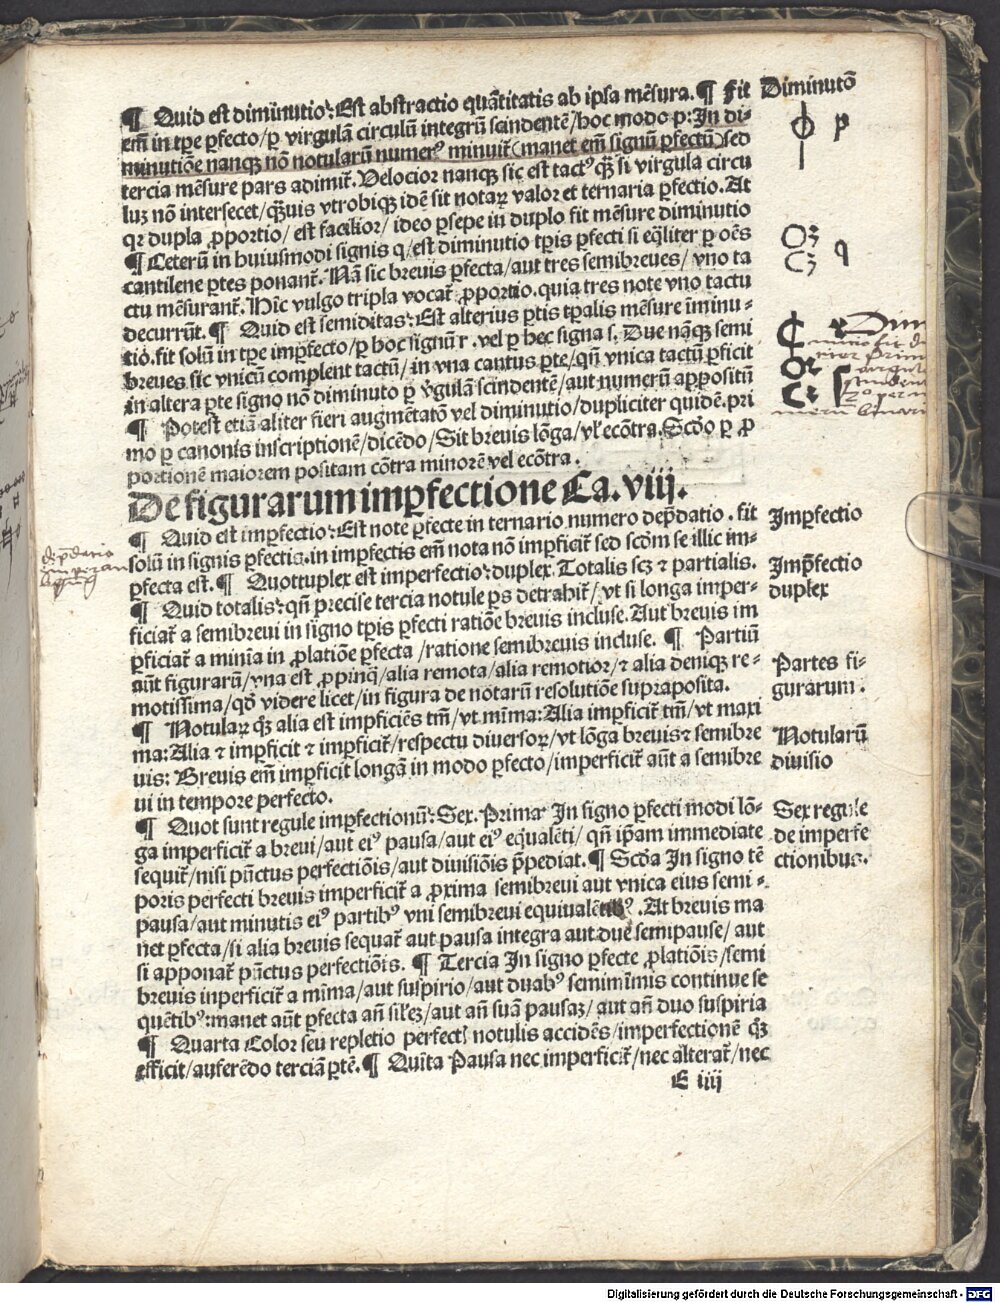 ¶ Quid est diminutio? Est abstractio quātitatis ab ipsa mēsura. ¶ Fit
em̄ in tp̄e ꝑfecto/ꝑ virgulā circulū integrū scindentē/hoc modo p: In di-
minutiōe nanqꝫ nō notularū numerꝰ minuit̄ (manet em̄ signū ꝑfectū) sed
tercia mēsure pars adimit̄. Velocior nanqꝫ sic est tactꝰ qꝫ si virgula circu
luꝫ nō intersecet/q̄uis vtrobiqꝫ idē sit notaꝝ valor et ternaria ꝑfectio. At
qꝛ dupla ꝓportio/est facilior/ideo ꝑsepe in duplo fit mēsure diminutio
¶ Ceterū in huiusmodi signis q/est diminutio tp̄is ꝑfecti si eq̄liter ꝑ oēs
cantilene ꝑtes ponant̄. Nā sic breuis ꝑfecta/aut tres semibreues/vno ta
ctu mēsurant̄. Hīc vulgo tripla vocat̄ ꝓportio. quia tres note vno tactu
decurrūt. ¶ Quid est semiditas? Est alterius ꝑtis tꝑalis mēsure īminu-
tiō. fit solū in tp̄e imꝑfecto/ꝑ hoc signū r. vel ꝑ hec signa s. Due nāqꝫ semi
breues sic vnicū complent tactū/in vna cantus ꝑte/qn̄ vnica tactū ꝑficit
in altera ꝑte signo nō diminuto ꝑ v̄gulā scindentē/aut numerū aꝑpositū
¶ Potest etiā aliter fieri augmētatō vel diminutio/dupliciter quidē. pri
mo ꝑ canonis inscriptionē/dicēdo/Sit breuis lōga/vl̄ ecōtra. Scd̄o ꝑ ꝓ
portionē maiorem positam cōtra minorē vel ecōtra.
De figurarum imꝑfectione Ca. viij.
¶ Quid est imꝑfectio? Est note ꝑfecte in ternario numero dep̄datio. fit
solū in signis ꝑfectis. in imꝑfectis em̄ nota nō imꝑficit̄ sed scd̄m se illic im-
ꝑfecta est. ¶ Quottuplex est imperfectio? duplex. Totalis scꝫ ⁊ partialis.
¶ Quid totalis? qn̄ precise tercia notule ꝑs detrahit̄/vt si longa imper-
ficiat̄ a semibreui in signo tp̄is ꝑfecti ratiōe breuis incluse. Aut breuis im
ꝑficiat̄ a minīa in ꝓlatiōe ꝑfecta/ratione semibreuis incluse. ¶ Partiū
aūt figurarū/vna est ꝓpinq̄/alia remota/alia remotior/⁊ alia deniqꝫ re-
motissima/qd̄ videre licet/in figura de notarū resolutiōe supraposita.
¶ Notulaꝝ qꝫ alia est imꝑficiēs tm̄/vt mīma: Alia imꝑficit̄ tm̄/vt maxi
ma: Alia ⁊ imꝑficit ⁊ imꝑficit̄/respectu diuersoꝝ/vt lōga breuis ⁊ semibre
uis: Breuis em̄ imꝑficit longā in modo ꝑfecto/imperficit̄ aūt a semibre
ui in tempore perfecto.
¶ Quot sunt regule imꝑfectionū? Sex. Prima In signo ꝑfecti modi lō-
ga imperficit̄ a breui/aut eiꝰ pausa/aut eiꝰ eq̄ualēti/qn̄ ip̄am immediate
sequit̄/nisi pūctus perfectiōis/aut diuisiōis p̄pediat. ¶ Scd̄a In signo tē
poris perfecti breuis imperficit̄ a ꝓxima semibreui aut vnica eius semi-
pausa/aut minutis eiꝰ partibꝰ vni semibreui equiualētibꝰ. At breuis ma
net ꝑfecta/si alia breuis sequat̄ aut pausa integra aut due semipause/aut
si apponat̄ pūctus perfectiōis. ¶ Tercia In signo ꝑfecte ꝓlatiōis/semi
breuis inperficit̄ a mīma/aut suspirio/aut duabꝰ semimīmis continue se
quētibꝰ: manet aūt ꝑfecta an̄ sil'eꝫ/aut an̄ suā pausaꝫ/aut an̄ duo suspiria
¶ Quarta Color seu repletio perfectꝭ notulis accidēs/imperfectionē qꝫ
efficit/auferēdo terciā ꝑtē. ¶ Quīta Pausa nec imperficit̄/nec alterat̄/nec
E iiij
Diminutō
p
O3
C3
q
r
O2
C2
s
Imꝑfectio
Imꝑfectio
duplex
Partes fi-
gurarum.
Notularū
diuisio
Sex regule
de imperfe
ctionibus.
Digitalisierung gefördert durch die Deutsche Forschungsgemeinschaft - DFG